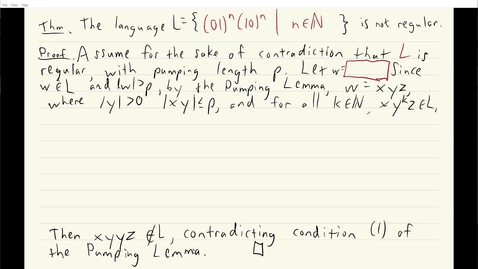 Thm. The language L={(01)ⁿ(10)ⁿ | n∈ℕ } is not regular.
Proof. Assume for the sake of contradiction that L is
regular, with pumping length p. Let w= Since
w∈L and |w|>p, by the Pumping Lemma, w = xyz,
where |y|>0 |xy|≤p, and for all k∈ℕ, xyᵏz∈L.
Then xyyz ∉L, contradicting condition (1) of
the Pumping Lemma. □